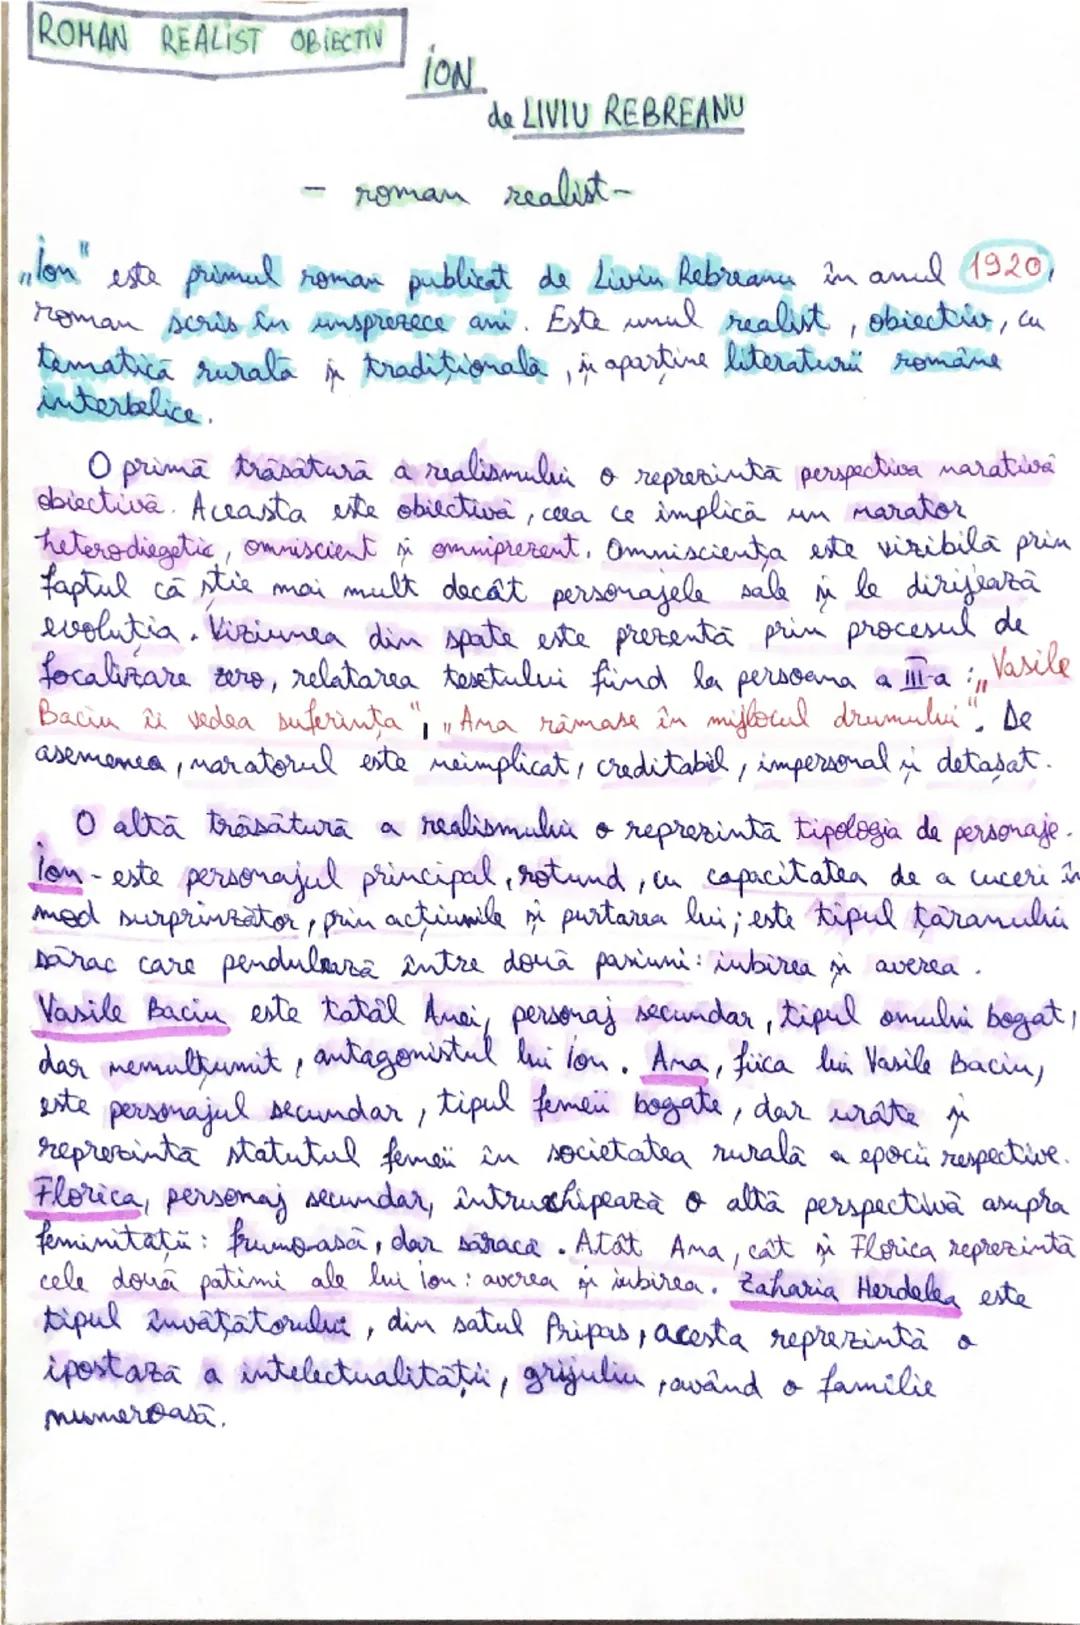 ROMAN REALIST OBIECTIV
ION
de LIVIU REBREANU
- roman realist-
„Ion" este primul roman publicat de Liviu Rebreanu în anul 1920,
roman scris în unsprezece ani. Este unul realist, obiectiv, cu
tematică rurală și tradițională, și aparține literaturii române
interbelice.
O primă trăsătură a realismului o reprezintă perspectiva narativă
obiectivă. Aceasta este obiectivă, ceea ce implică un narator
heterodiegetic, omniscient și omniprezent. Omnisciența este vizibilă prin
faptul că știe mai mult decât personajele sale și le dirijează
evoluția. Viziunea din spate este prezentă prin procesul de
focalizare zero, relatarea textului fiind la persoana a III-a: „Vasile
Baciu îi vedea suferința", „Ana rămase în mijlocul drumului". De
asemenea, naratorul este neimplicat, creditabil, impersonal și detașat.
O altă trăsătură a realismului o reprezintă tipologia de personaje.
Ion - este personajul principal, rotund, cu capacitatea de a cuceri în
mod surprinzător, prin acțiunile și purtarea lui; este tipul țăranului
sărac care pendulează între două pasiuni: iubirea și averea.
Vasile Baciu este tatăl Anei, personaj secundar, tipul omului bogat,
dar nemulțumit, antagonistul lui Ion. Ana, fiica lui Vasile Baciu,
este personajul secundar, tipul femeii bogate, dar urâte și
reprezintă statutul femeii în societatea rurală a epocii respective.
Florica, personaj secundar, întruchipează o altă perspectivă asupra
feminității: frumoasă, dar săracă. Atât Ana, cât și Florica reprezintă
cele două patimi ale lui Ion: averea și iubirea. Zaharia Herdelea este
tipul învățătorului, din satul Pripas, acesta reprezintă o
ipostază a intelectualității, grijuliu, având o familie
numeroasă.